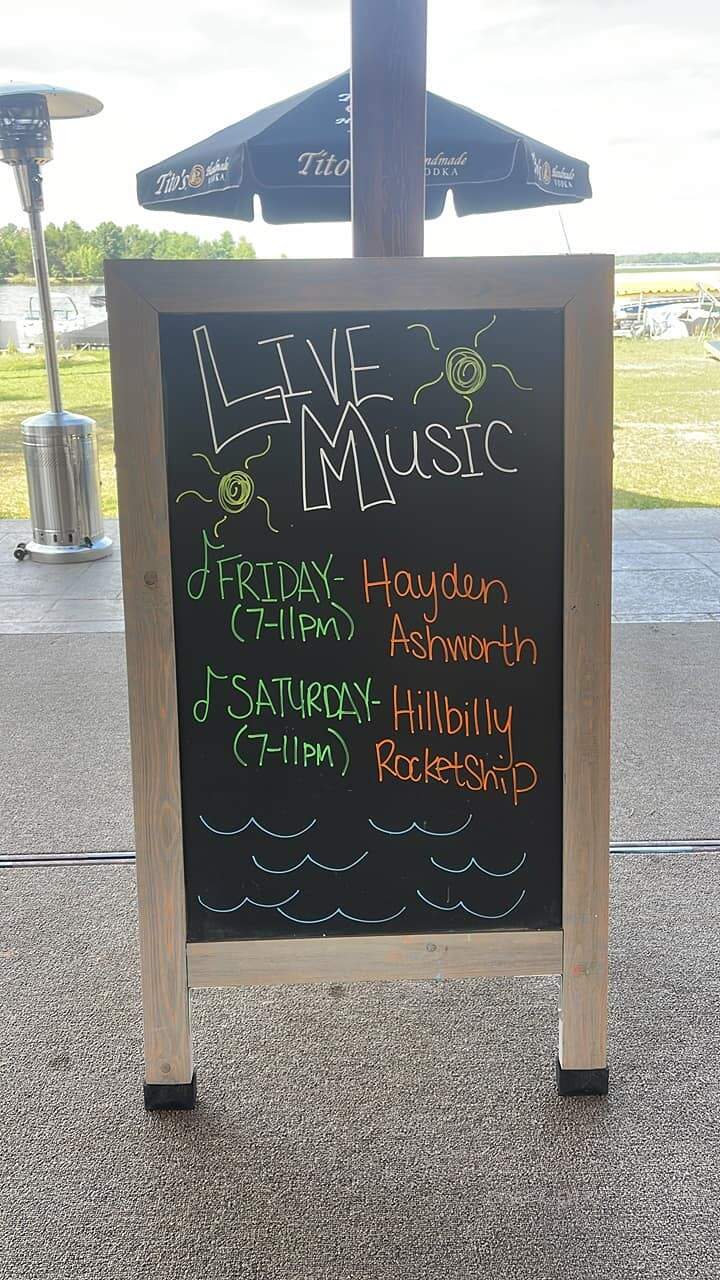 Tito's Handmade
VODKA
Tito
ndmade
ODKA
Handmade
VODKA
LIVE
MUSIC
FRIDAY- Hayden
(7-11PM) Ashworth
SATURDAY- Hillbilly
(7-11PM) Rocketship